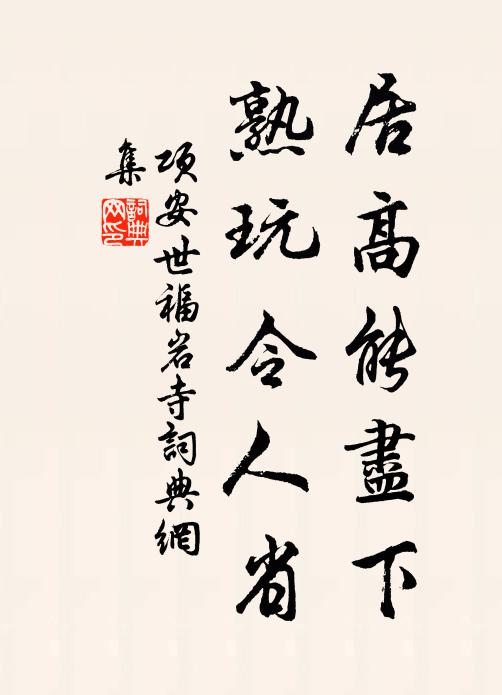 居高能盡下
熟玩令人省
項安世福岩寺詞典網
集
詞典
网印